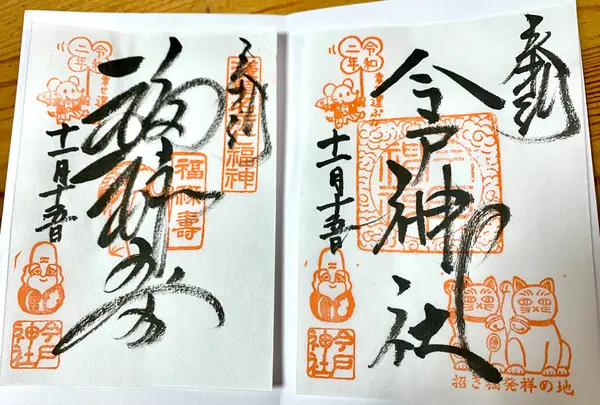 奉拝
今戸神社
十一月十五日
令和
二年
今戸
神社
招き猫発祥の地
奉拝
福神
福禄寿
福禄寿
十一月十五日
令和
二年
今戸
神社